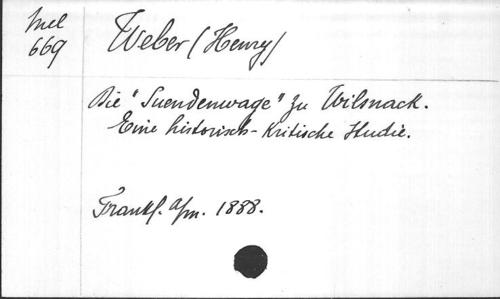 Mel
669
Weber (Henry)
Die "Suendenwage" zu Wilsnack.
Eine historisch-kritische Studie.
Frankf. a/m. 1888.